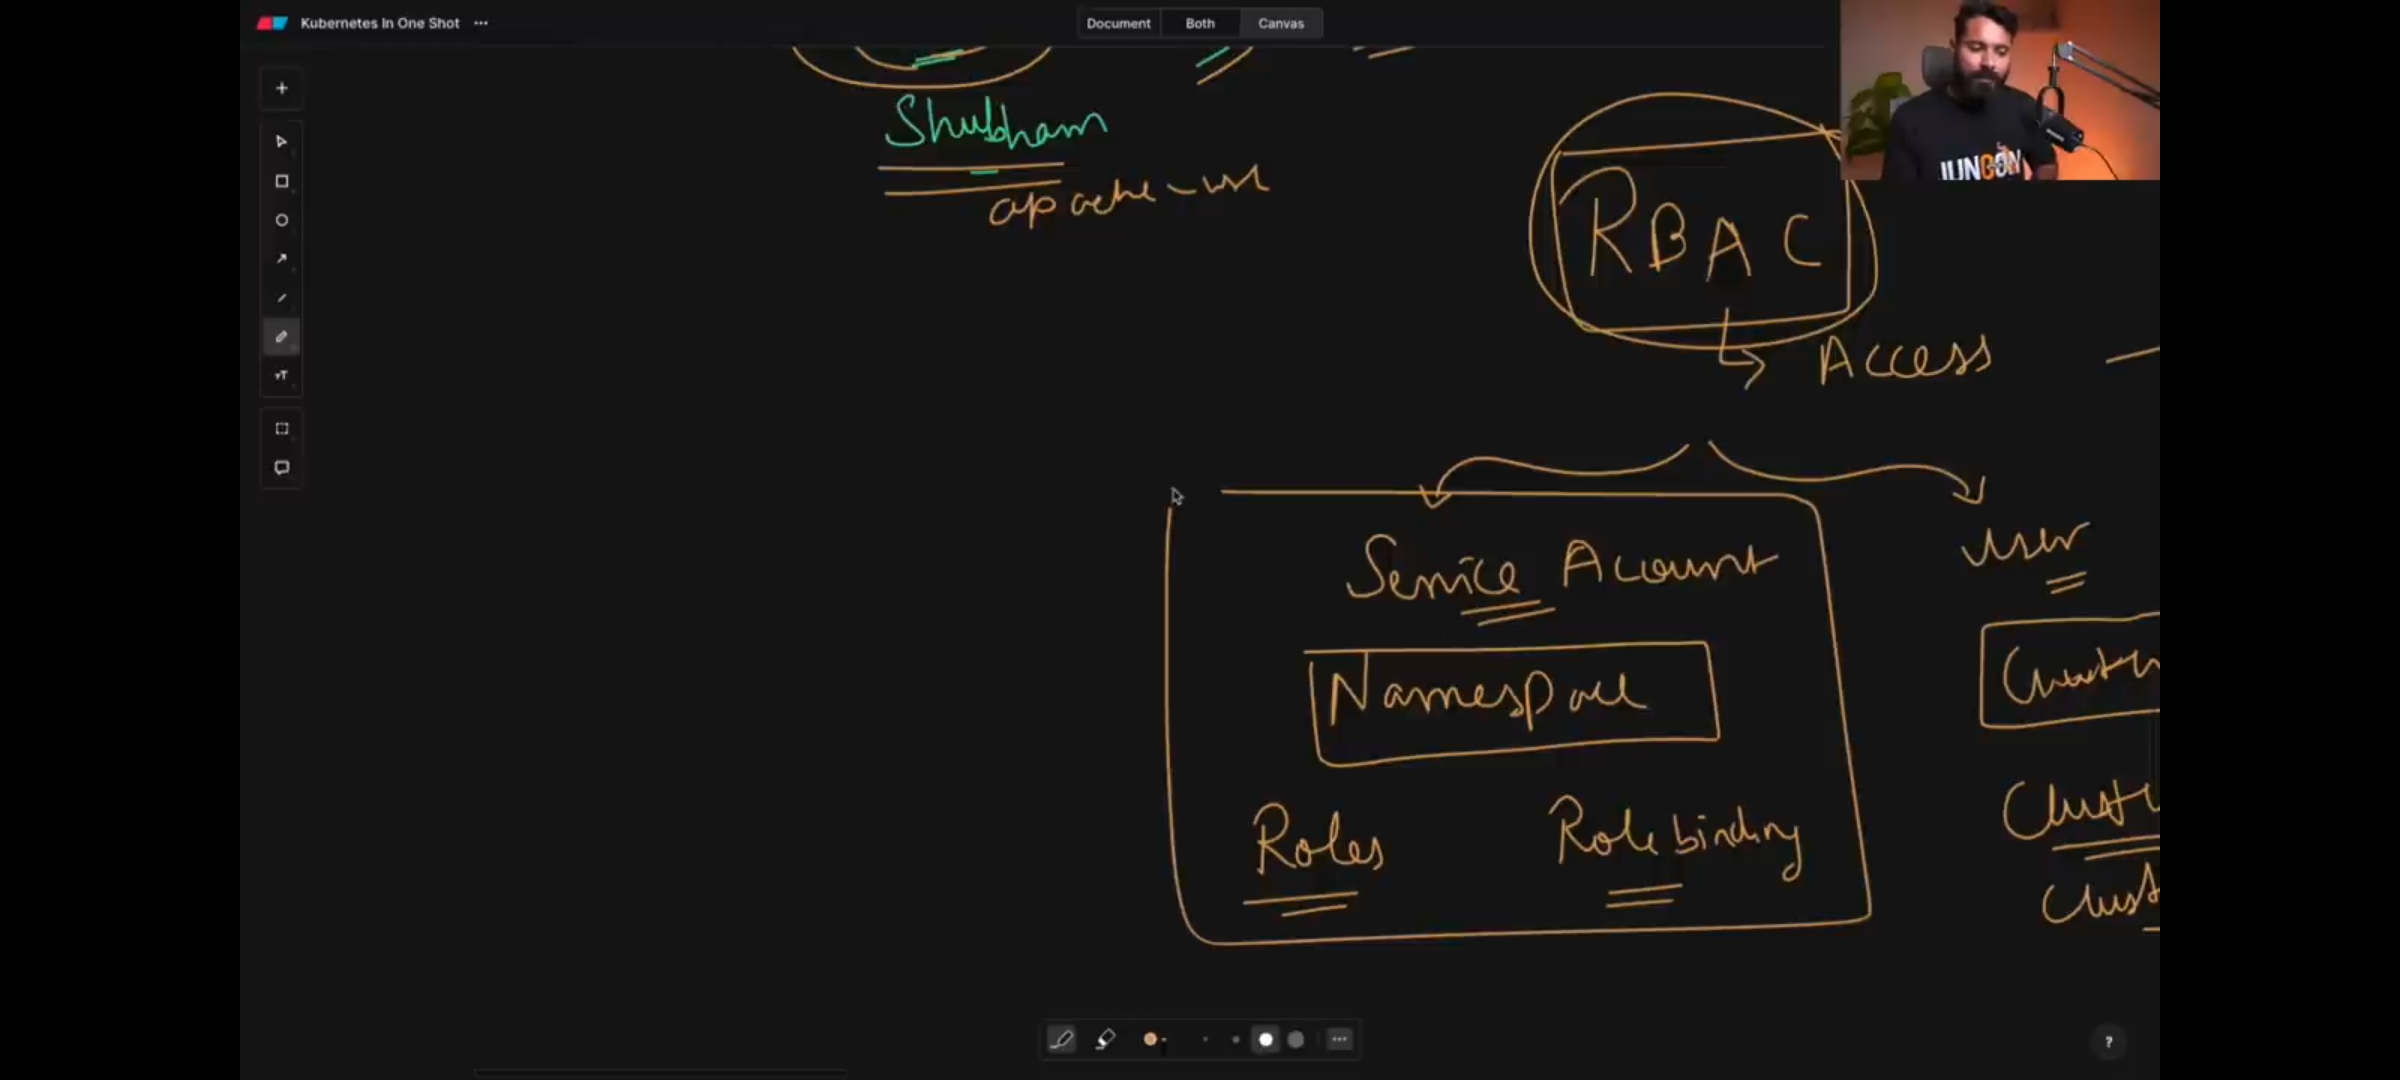 Kubernetes In One Shot ...
Document Both Canvas
Shubham
RBAC
Access
Service Account
User
Namespace
Roles
Role binding
?